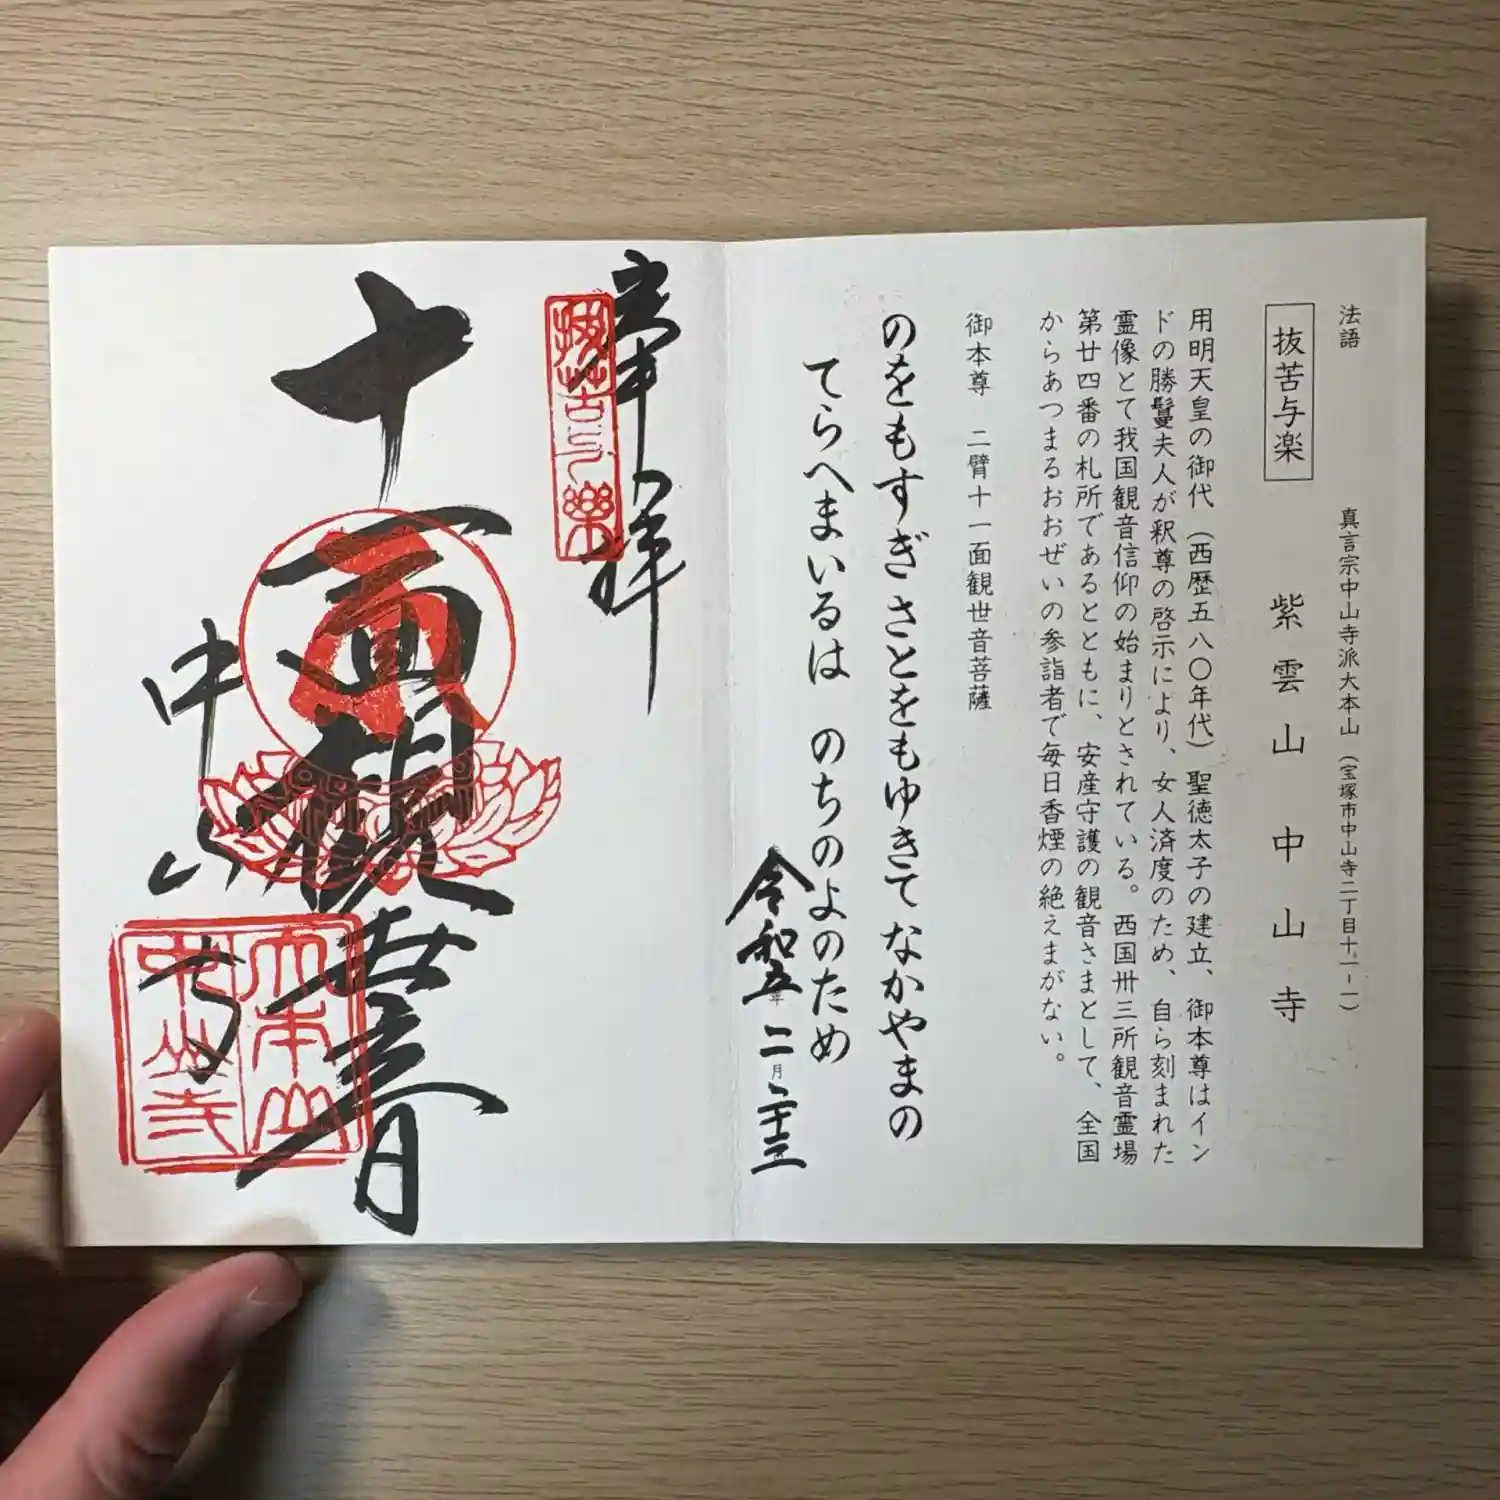 法語
真言宗中山寺派大本山(宝塚市中山寺二丁目十一-一)
抜苦与楽
紫雲山中山寺
用明天皇の御代(西歴五八〇年代)聖徳太子の建立、御本尊はイン
ドの勝鬘夫人が釈尊の啓示により、女人済度のため、自ら刻まれた
霊像とて我国観音信仰の始まりとされている。西国卅三所観音霊場
第廿四番の札所であるとともに、安産守護の観音さまとして、全国
からあつまるおおぜいの参詣者で毎日香煙の絶えまがない。
御本尊 二臂十一面観世音菩薩
のをもすぎ さとをもゆきて なかやまの
てらへまいるは のちのよのため
令和五年二月二十三日
奉拝
抜苦与樂
十一面観世音
中山寺
大本山
中山寺